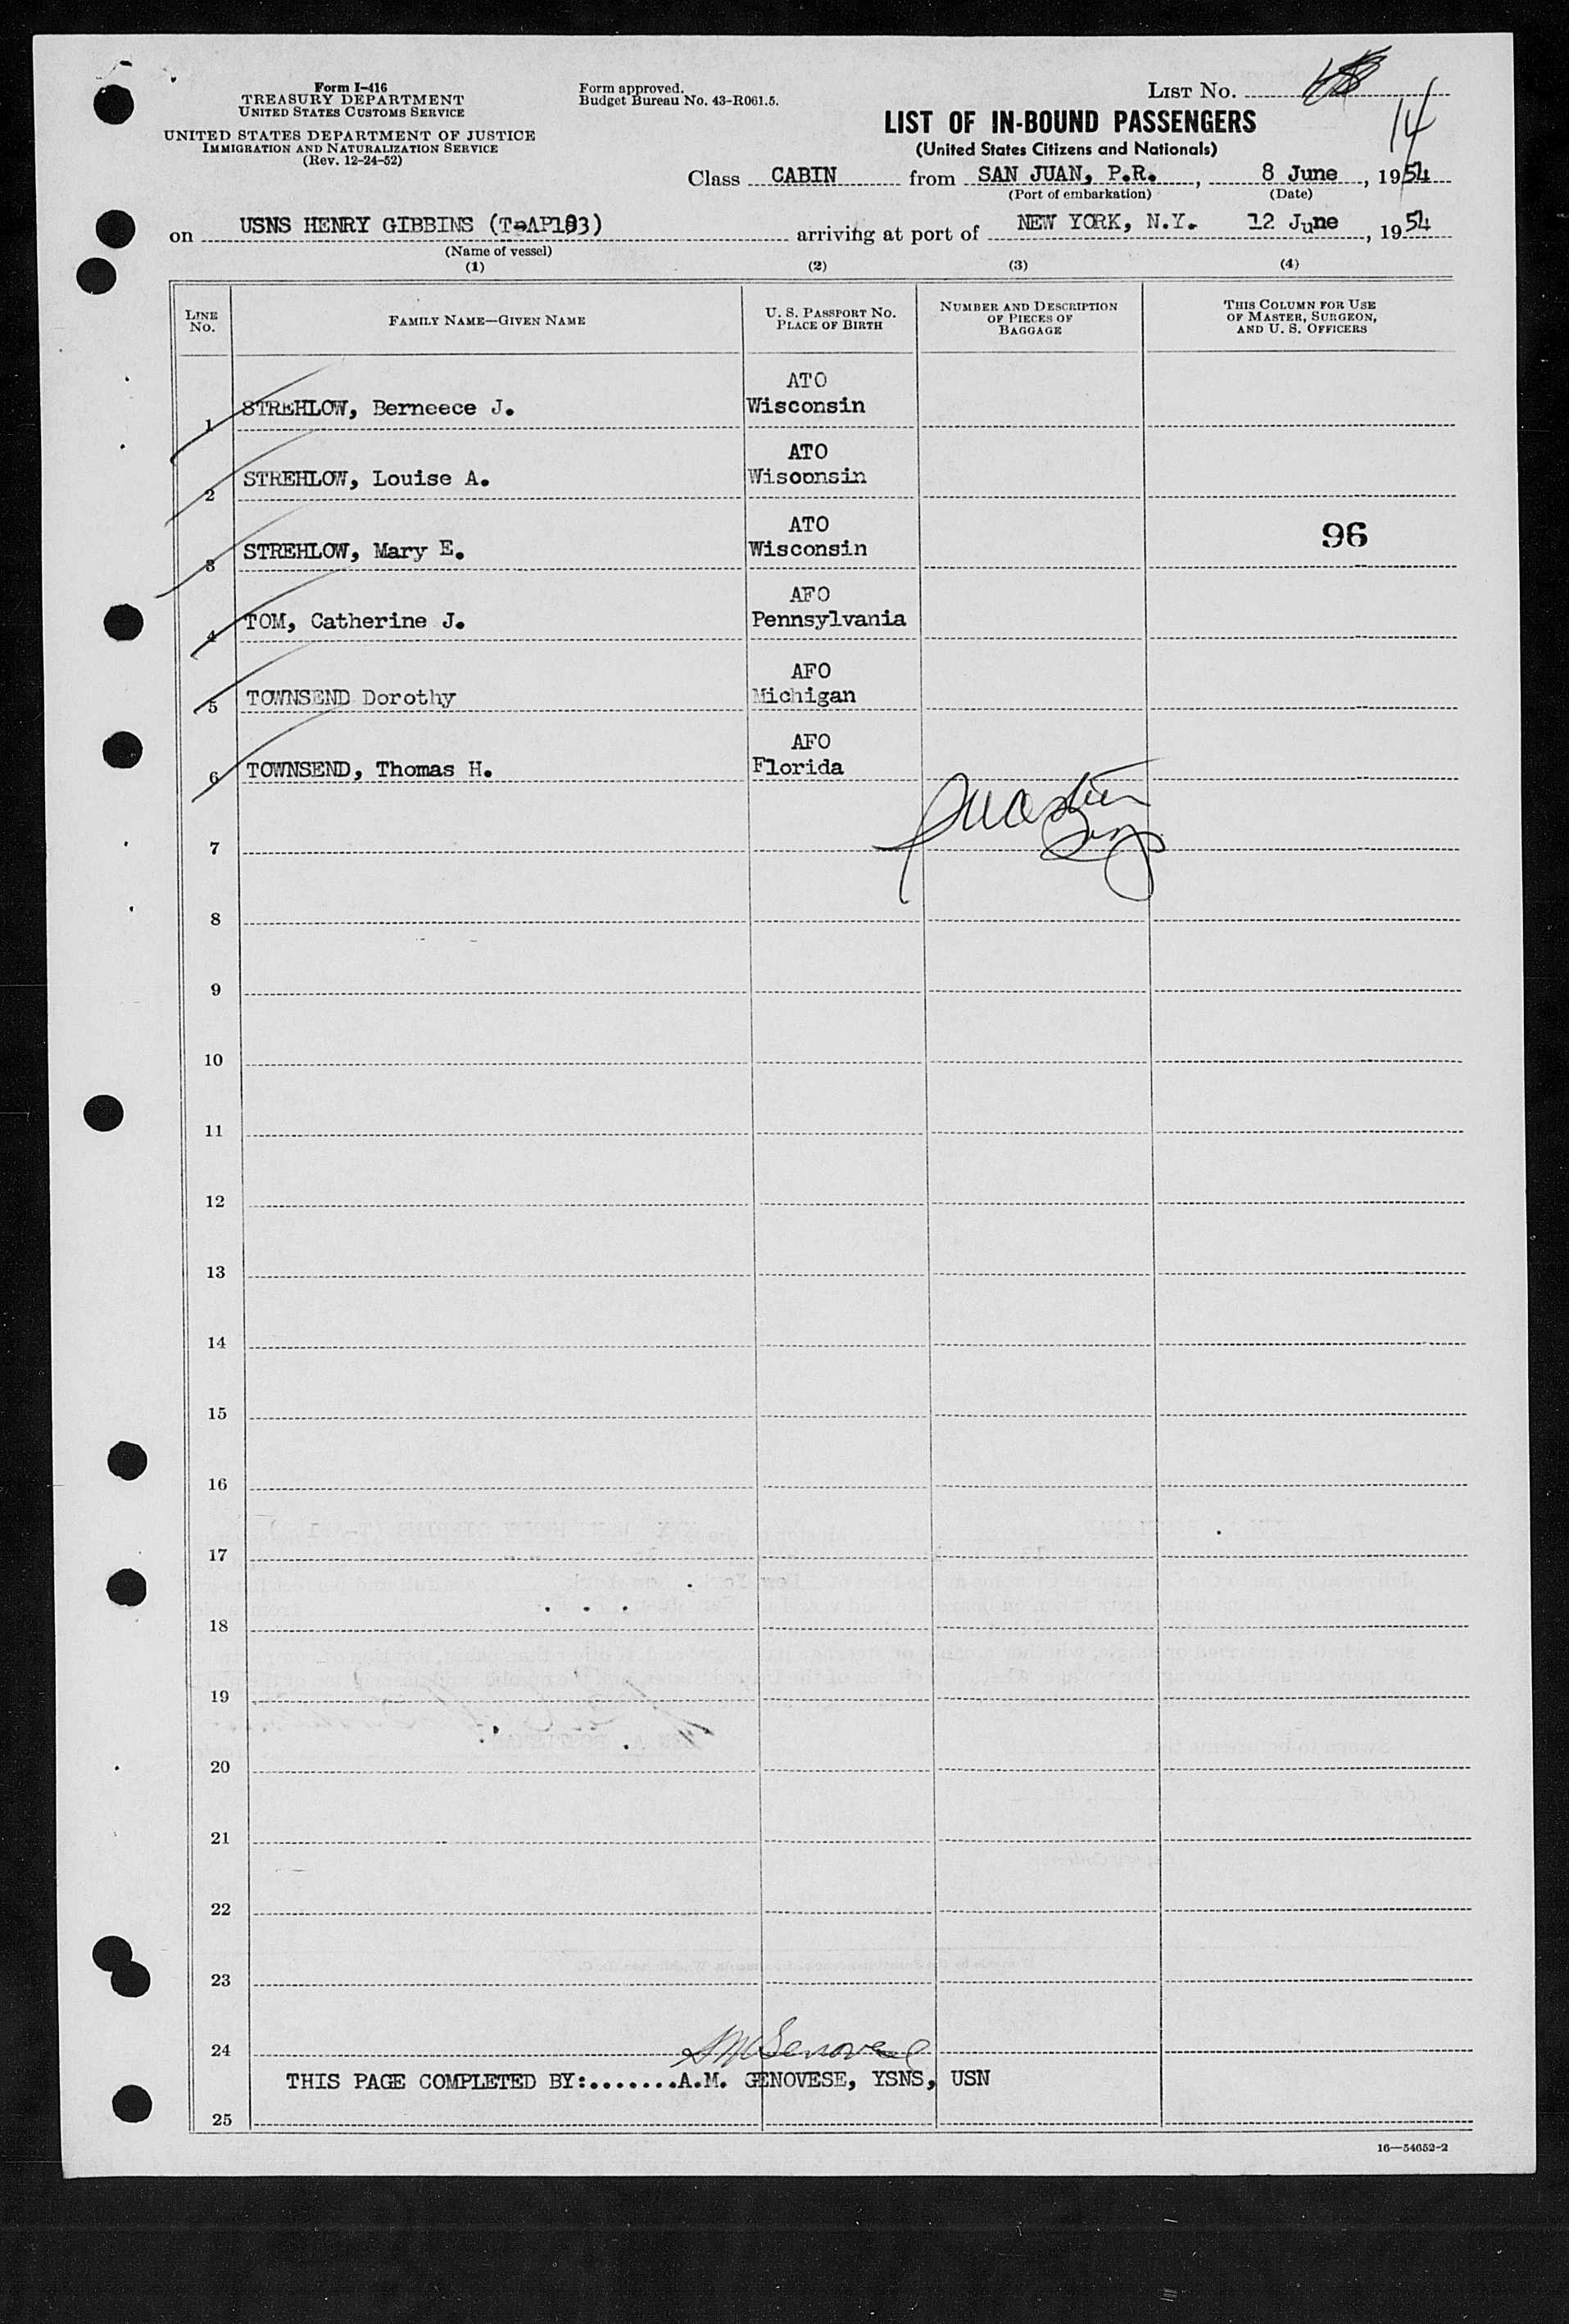 Form I-416
TREASURY DEPARTMENT
UNITED STATES CUSTOMS SERVICE
UNITED STATES DEPARTMENT OF JUSTICE
IMMIGRATION AND NATURALIZATION SERVICE
(Rev. 12-24-52)
Form approved.
Budget Bureau No. 43-R061.5.
LIST NO.
14
LIST OF IN-BOUND PASSENGERS
(United States Citizens and Nationals)
Class CABIN from SAN JUAN, P.R., 8 June, 1954
(Port of embarkation) (Date)
on USNS HENRY GIBBINS (T-AP183) arriving at port of NEW YORK, N.Y. 12 June, 1954
(Name of vessel)
(1) (2) (3) (4)
LINE NO.
FAMILY NAME—GIVEN NAME
U. S. PASSPORT NO.
PLACE OF BIRTH
NUMBER AND DESCRIPTION
OF PIECES OF
BAGGAGE
THIS COLUMN FOR USE
OF MASTER, SURGEON,
AND U. S. OFFICERS
ATO
1 STREHLOW, Berneece J. Wisconsin
ATO
2 STREHLOW, Louise A. Wisconsin
ATO
3 STREHLOW, Mary E. Wisconsin
96
AFO
4 TOM, Catherine J. Pennsylvania
AFO
5 TOWNSEND Dorothy Michigan
AFO
6 TOWNSEND, Thomas H. Florida
7
8
9
10
11
12
13
14
15
16
17
18
19
20
21
22
23
24
THIS PAGE COMPLETED BY:.......A.M. GENOVESE, YSNS, USN
25
16—54652-2